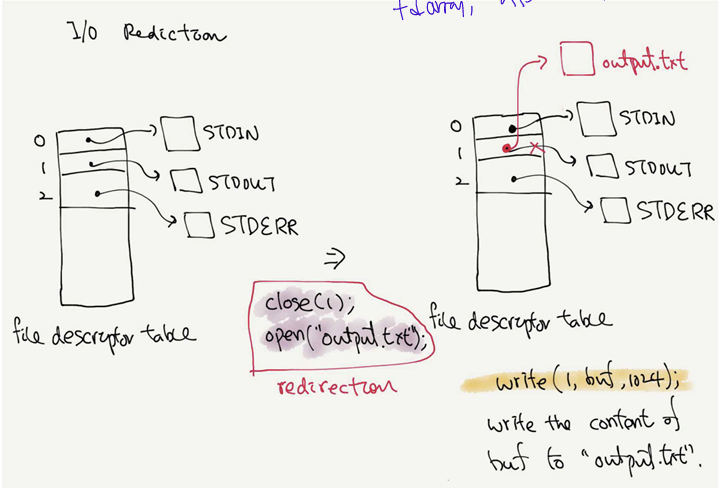 fdarray,
I/O Rediction
0
1
2
STDIN
STDOUT
STDERR
file descriptor table
⇒
close(1);
open("output.txt");
redirection
output.txt
0
1
2
STDIN
STDOUT
STDERR
file descriptor table
write(1, buf, 1024);
write the content of
buf to "output.txt".